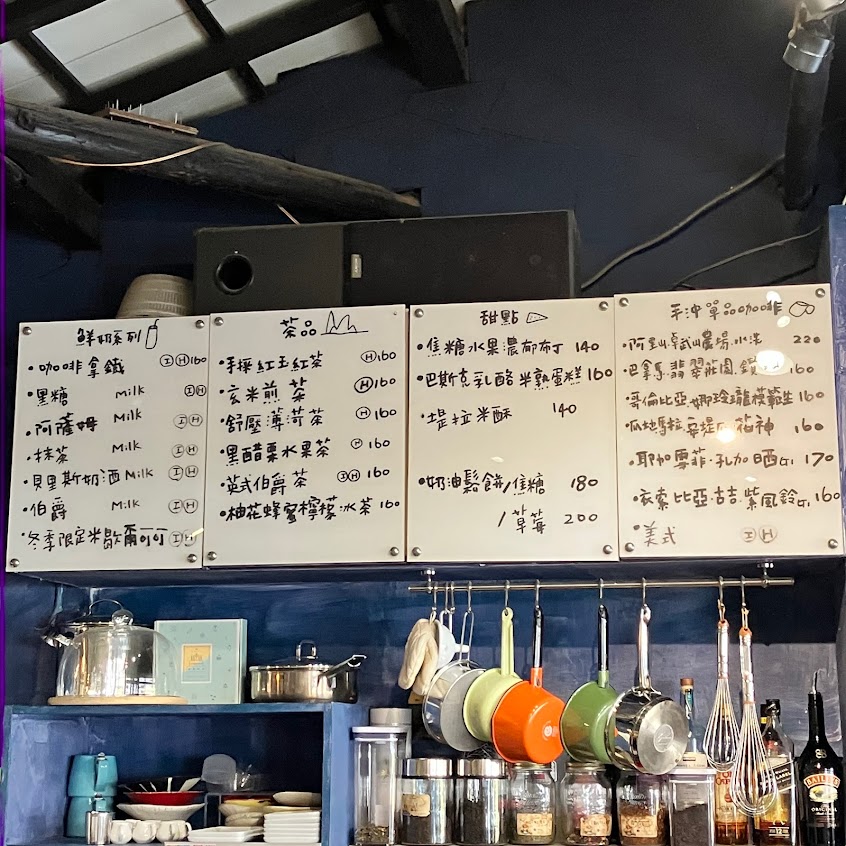 鮮奶系列
·咖啡拿鐵 I H 160
·黑糖 Milk I H
·阿薩姆 Milk I H
·抹茶 Milk I H
·貝里斯奶酒 Milk I H
·伯爵 Milk I H
·冬季限定米歇爾可可 I H
茶品
·手採紅玉紅茶 H 160
·玄米煎茶 H 160
·舒壓薄荷茶 H 160
·黑醋栗水果茶 H 160
·英式伯爵茶 I H 160
·柚花蜂蜜檸檬·冰茶 160
甜點
·焦糖水果濃郁布丁 140
·巴斯克乳酪半熟蛋糕 160
·堤拉米酥 140
·奶油鬆餅/焦糖 180
/草莓 200
手沖單品咖啡
·阿里山·卓武山農場·水洗 220
·巴拿馬·翡翠莊園· 160
·哥倫比亞·娜玲瓏·模範生 160
·瓜地馬拉· 花神 160
·耶加雪菲·孔加 日晒G1 170
·衣索比亞·古吉·紫風鈴G1 160
·美式 I H
BAILEYS
ORIGINAL
12